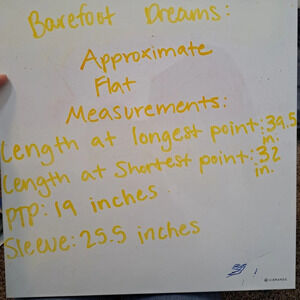 Barefoot Dreams:
Approximate
Flat
Measurements:
Length at longest point: 39.5 in.
Length at Shortest point: 32 in.
PTP: 19 inches
Sleeve: 25.5 inches